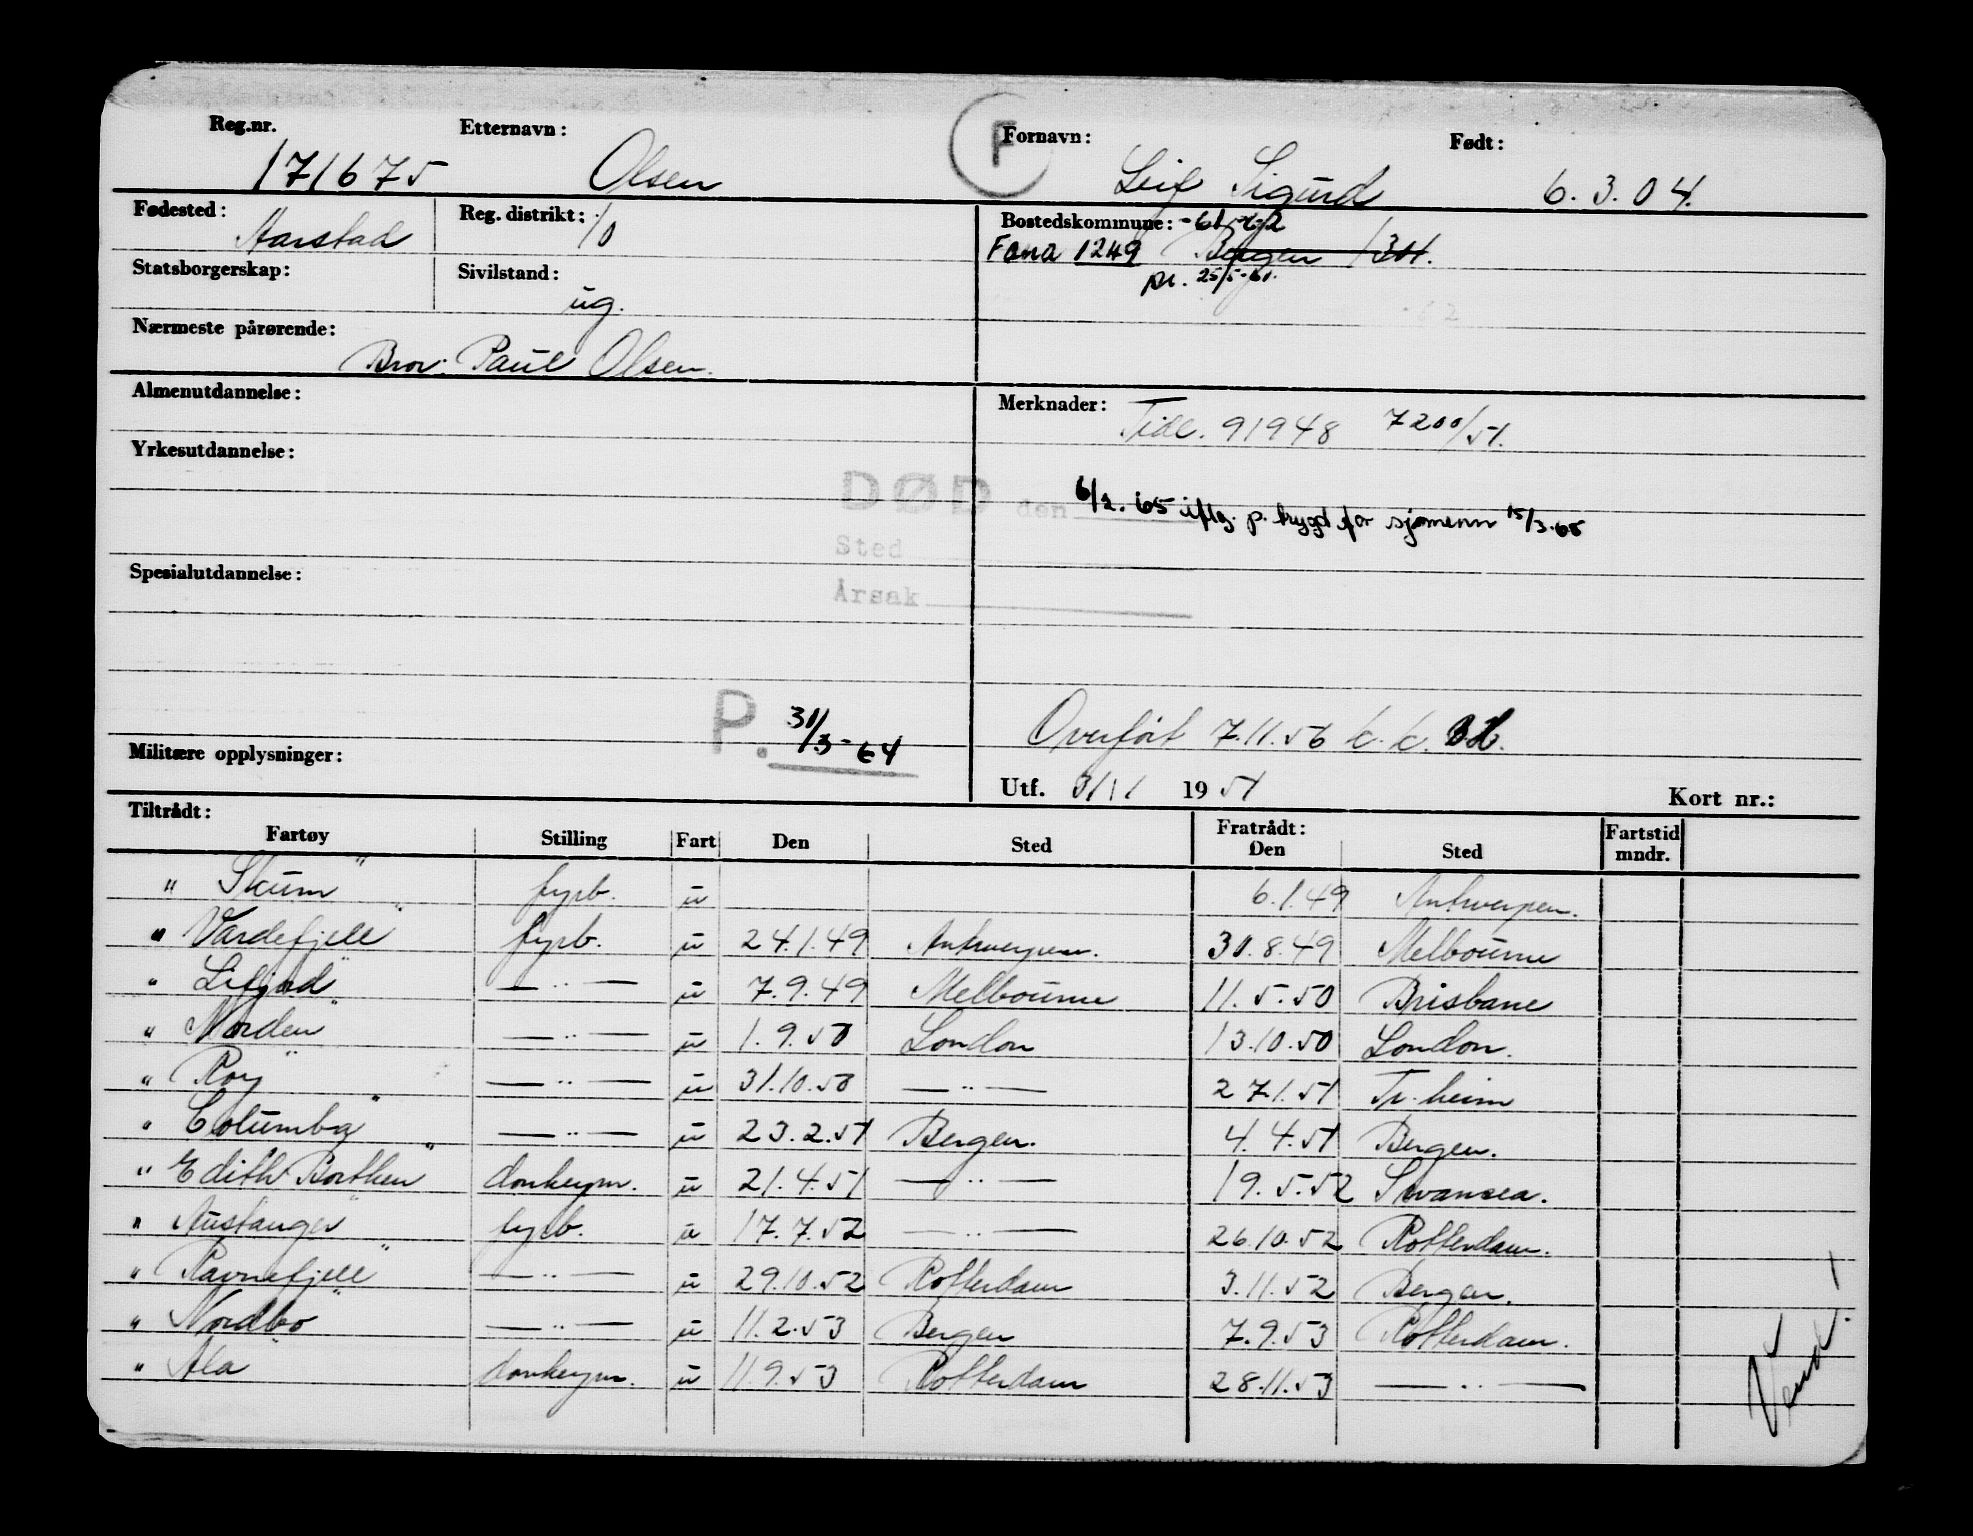 Reg.nr. Etternavn: F Fornavn: Født:
171675 Olsen Leif Sigurd 6.3.04.
Fødested: Aarstad Reg. distrikt: 10 Bostedskommune:
Fana 1249 Bergen 1301.
Statsborgerskap: Sivilstand: ug. 25/5-61.
Nærmeste pårørende:
Bror: Paul Olsen.
Almenutdannelse: Merknader: Tidl. 91948 7200/51.
Yrkesutdannelse:
DØD den 6/2.65 iflg. p. trygd for sjømenn 15/3.65
Sted
Årsak
Spesialutdannelse:
P. 31/3-64
Overført 7.11.56 k.k.
Militære opplysninger:
Utf. 31/1 1951 Kort nr.:
Tiltrådt: Fratrådt: Fartstid mndr.
Fartøy Stilling Fart Den Sted Den Sted
"Skum" fyrb. u 6.1.49 Antwerpen.
"Vardefjell" fyrb. u 24.1.49 Antwerpen. 30.8.49 Melbourne
"Lifjord" — " — u 7.9.49 Melbourne 11.5.50 Brisbane
"Norden" — " — u 1.9.50 London 13.10.50 London.
"Roy" — " — u 31.10.50 — " — 27.1.51 Tr.heim
"Columba" — " — u 23.2.51 Bergen. 4.4.51 Bergen.
"Edith Borthen" donkeym. u 21.4.51 — " — 19.5.52 Swansea.
"Austanger" fyrb. u 17.7.52 — " — 26.10.52 Rotterdam.
"Ravnefjell" — " — u 29.10.52 Rotterdam 3.11.52 Bergen.
"Nordbo" — " — u 11.2.53 Bergen 7.9.53 Rotterdam.
"Ala" donkeym. u 11.9.53 Rotterdam 28.11.53 — " —
Vend!